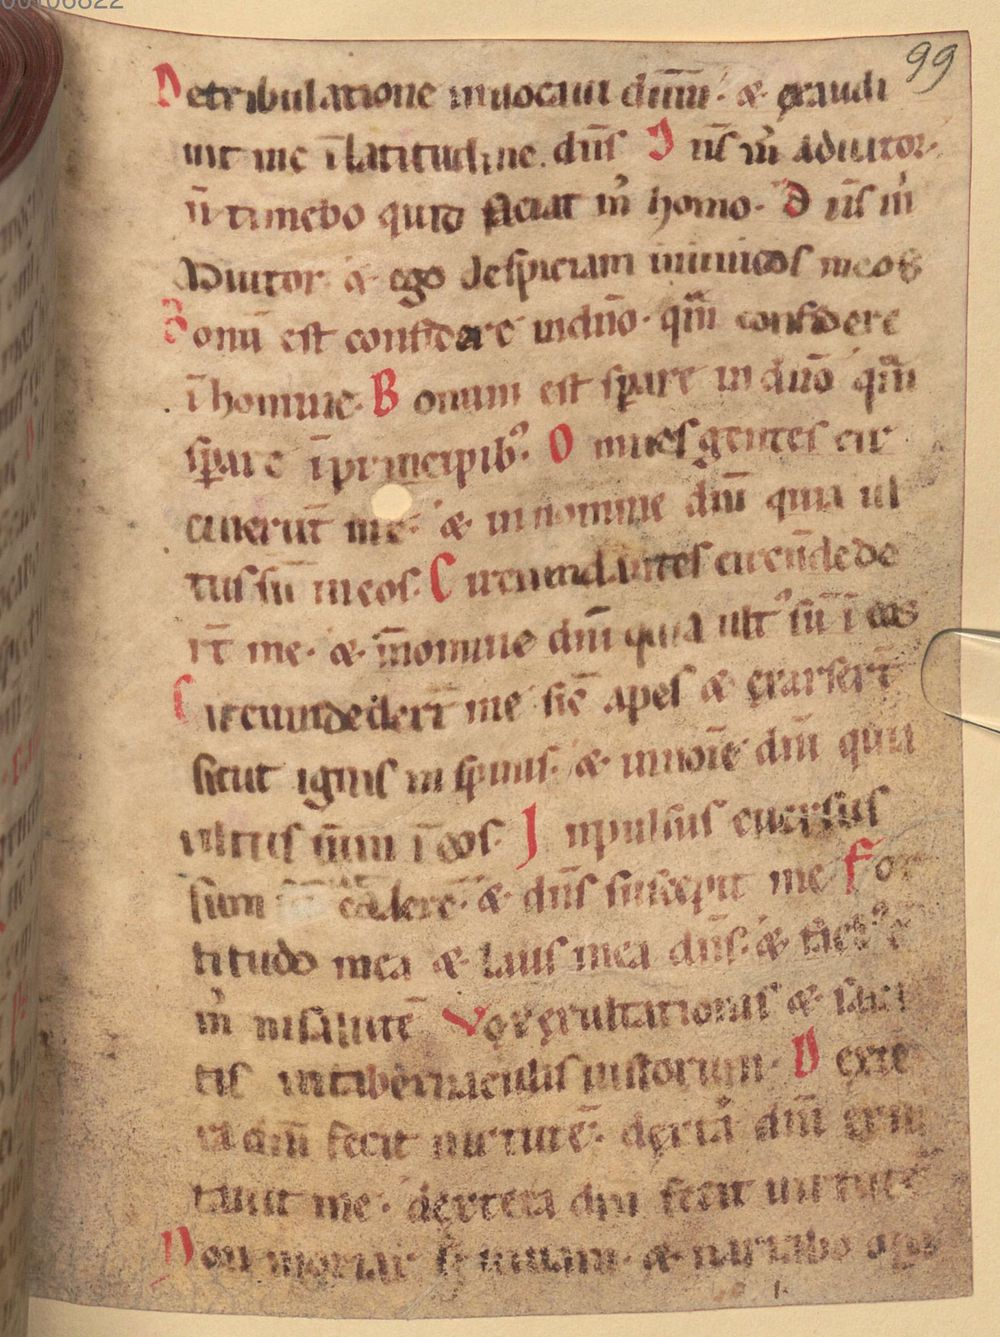 99
Detribulatione inuocaui dn̄m· & exaudi
uit me ī latitudine. dn̄s Dn̄s m̉ adiutor·
n̄ timebo quid faciat m̉ homo· Dn̄s m̉
adiutor· & ego despiciam inimicos meos
Bonū est confidere indn̄o· qm̄ confidere
ī homine· Bonum est spare in dn̄o qm̄
spare ī principib; Omnes gentes cir
cuierūt me· & innomine dn̄i quia ul
tus sū in eos· Circumdantes circūdede
rt̄ me· & īnomine dn̄i quia ult; sū ī eos
Circumdedert̄ me sic̄ apes & exarsert̄
sicut ignis in spinis· & innoīe dn̄i quia
ultus sum ī eos· Inpulsus euersus
sum caderē· & dn̄s suscepit me For
titudo mea & laus mea dn̄s· &
m̉ insalutē Vox exultationis & salu
tis intabernaculis iustorum· Dexte
ra dn̄i fecit uirtutē· dexta dn̄i exal
tauit me· dextera dn̄i fecit uirtutē
Non moriar s; uiuam· & narrabo opa